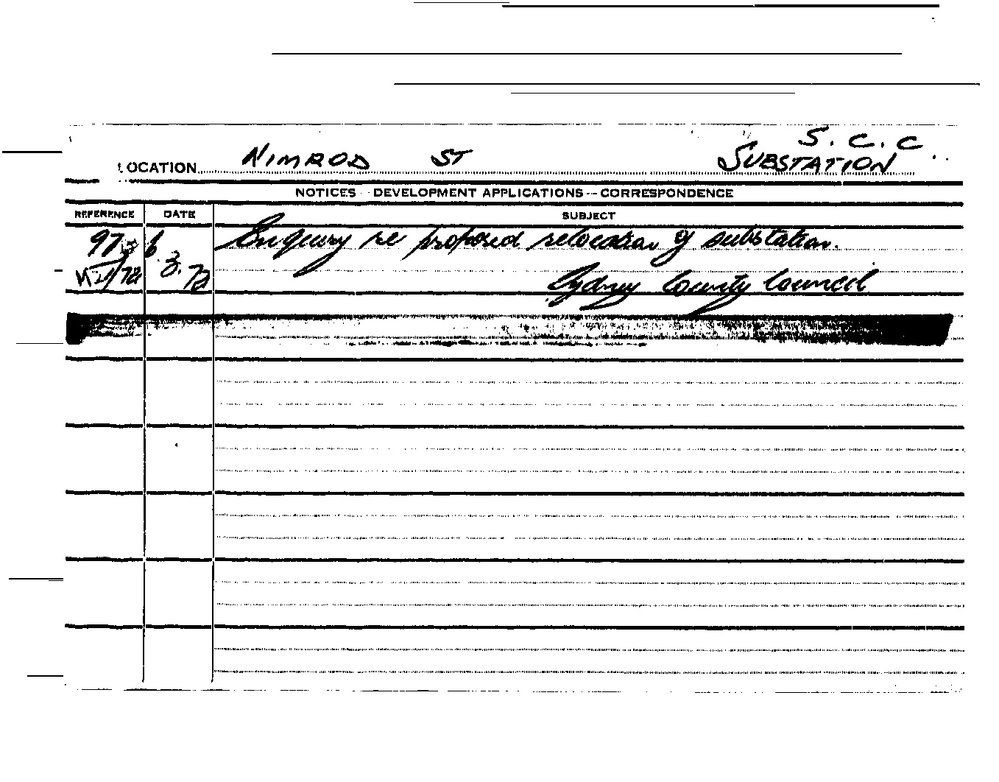 S. C. C
LOCATION NIMROD ST SUBSTATION
NOTICES - DEVELOPMENT APPLICATIONS - CORRESPONDENCE
REFERENCE DATE SUBJECT
6. Enquiry re proposed relocation of substation.
/72 3. 72 Sydney County Council